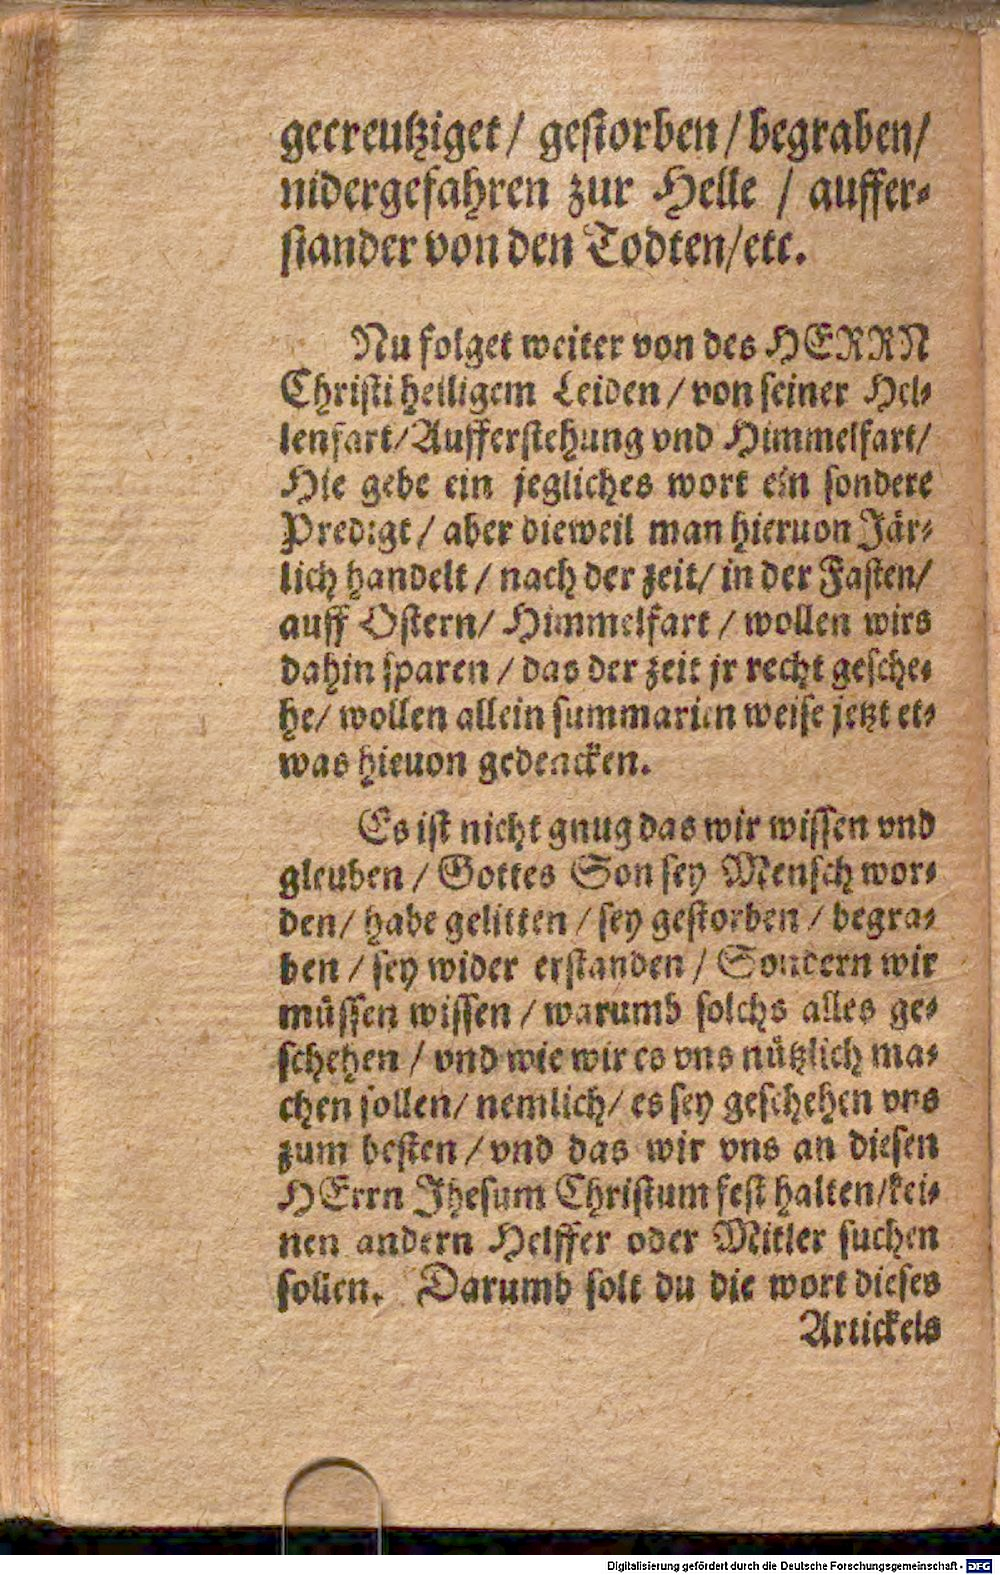 gecreutziget / gestorben / begraben /
nidergefahren zur Helle / auffer⸗
stander von den Todten / etc.
Nu folget weiter von des HERRN
Christi heiligem Leiden / von seiner Hel⸗
lenfart / Aufferstehung vnd Himmelfart /
Hie gebe ein jegliches wort ein sondere
Predigt / aber dieweil man hieruon Jär⸗
lich handelt / nach der zeit / in der Fasten /
auff Ostern / Himmelfart / wollen wirs
dahin sparen / das der zeit jr recht gesche⸗
he / wollen allein summarien weise jetzt et⸗
was hieuon gedencken.
Es ist nicht gnug das wir wissen vnd
gleuben / Gottes Son sey Mensch wor⸗
den / habe gelitten / sey gestorben / begra⸗
ben / sey wider erstanden / Sondern wir
müssen wissen / warumb solchs alles ge⸗
schehen / vnd wie wir es vns nützlich ma⸗
chen sollen / nemlich / es sey geschehen vns
zum besten / vnd das wir vns an diesen
HErrn Jhesum Christum fest halten / kei⸗
nen andern Helffer oder Mitler suchen
sollen. Darumb solt du die wort dieses
Artickels
Digitalisierung gefördert durch die Deutsche Forschungsgemeinschaft - DFG